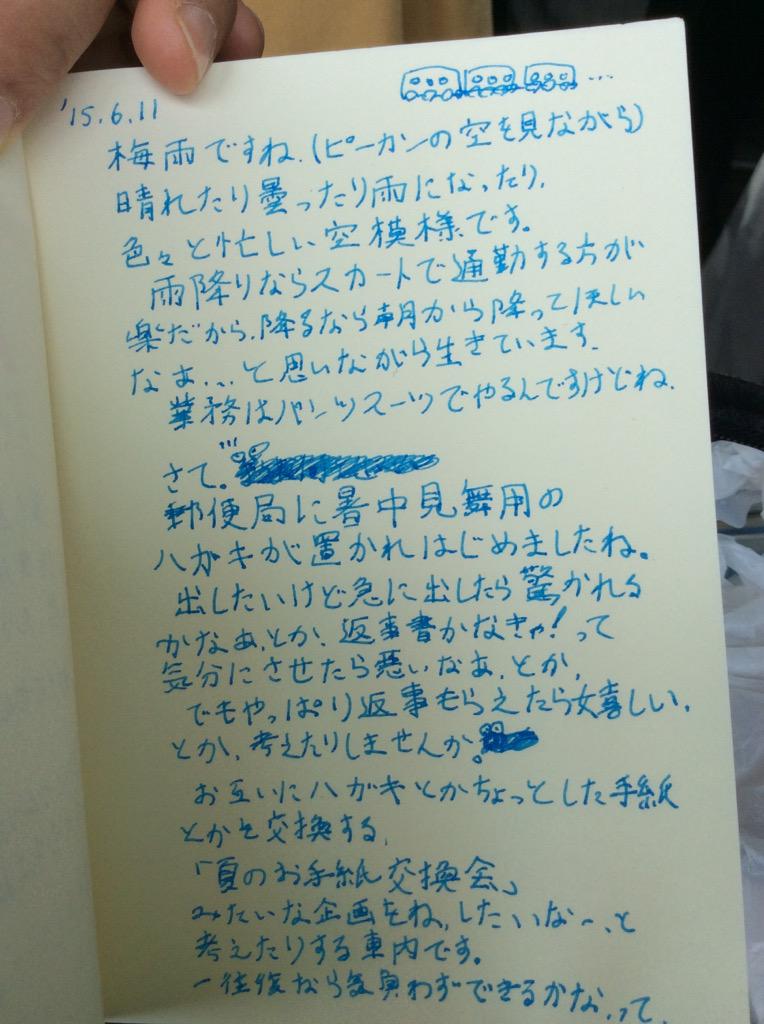 '15.6.11
梅雨ですね.(ピーカンの空を見ながら)
晴れたり曇ったり雨になったり,
色々と忙しい空模様です。
雨降りならスカートで通勤する方が
楽だから,降るなら朝から降ってほしい
なぁ...と思いながら生きています.
業務はパンツスーツでやるんですけどね.
さて。
郵便局に暑中見舞用の
ハガキが置かれはじめましたね。
出したいけど急に出したら驚かれる
かなぁ,とか,返事書かなきゃ!って
気分にさせたら悪いなぁ,とか,
でもやっぱり返事もらえたら嬉しい,
とか,考えたりしませんか。
お互いにハガキとかちょっとした手紙
とかを交換する,
「夏のお手紙交換会」
みたいな企画をね,したいな〜,と
考えたりする車内です。
一往復なら気負わずできるかな,って,